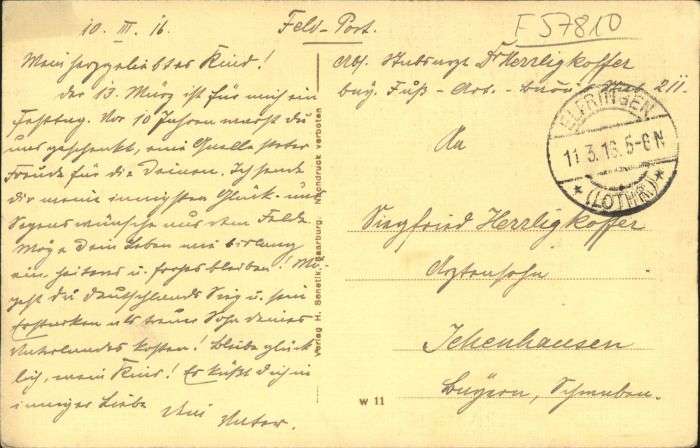 10. III. 16.
Mein herzgeliebtes Kind!
Der 13. März ist für mich ein
Festtag. Vor 10 Jahren warst du
uns geschenkt, eine Quelle steter
Freude für die Deinen. Ich sende
dir meine innigsten Glück- und
Segenswünsche aus dem Felde.
Möge Dein Leben ein
ein heiteres u. frohes bleiben! Mö-
gest du Deutschlands Sieg u. sein
Erstarken als treuer Sohn deines
Vaterlandes kosten! Bleibe glück-
lich, mein Kind! Es küßt Dich in
inniger Liebe
Dein
Vater.
Verlag H. Benetik, Saarburg. Nachdruck verboten
W 11
Feld-Post.
F 57810
Abs. Stabsarzt Dr Herrligkoffer
bay. Fuß-Art.-
An
Siegfried Herrligkoffer
Arztenssohn
Ichenhausen
Bayern, Schwaben.
ELFRINGEN
11.3.16. 5-6 N
* (LOTHR.) *